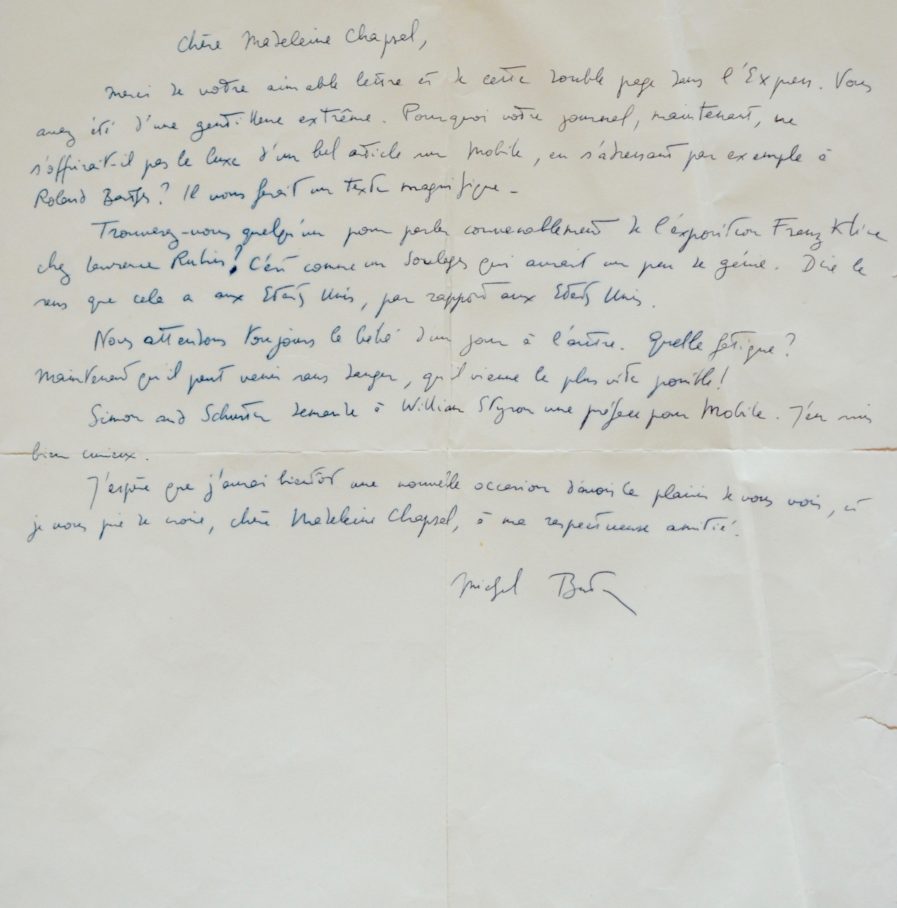 Chère Madeleine Chapsal,
Merci de votre aimable lettre et de cette double page dans l'Express. Vous
avez été d'une gentillesse extrême. Pourquoi votre journal, maintenant, ne
s'offrirait-il pas le luxe d'un bel article sur Mobile, en s'adressant par exemple à
Roland Barthes? Il vous ferait un texte magnifique -
Trouverez-vous quelqu'un pour parler convenablement de l'exposition Franz Kline
chez Lawrence Rubin? C'est comme un Soulages qui aurait un peu de génie. Dire le
sens que cela a aux Etats Unis, par rapport aux Etats Unis.
Nous attendons toujours le bébé d'un jour à l'autre. Quelle fatigue?
Maintenant qu'il peut venir sans danger, qu'il vienne le plus vite possible!
Simon and Schuster demande à William Styron une préface pour Mobile. J'en suis
bien curieux.
J'espère que j'aurai bientôt une nouvelle occasion d'avoir le plaisir de vous voir, et
je vous prie de croire, chère Madeleine Chapsal, à ma respectueuse amitié.
Michel Butor